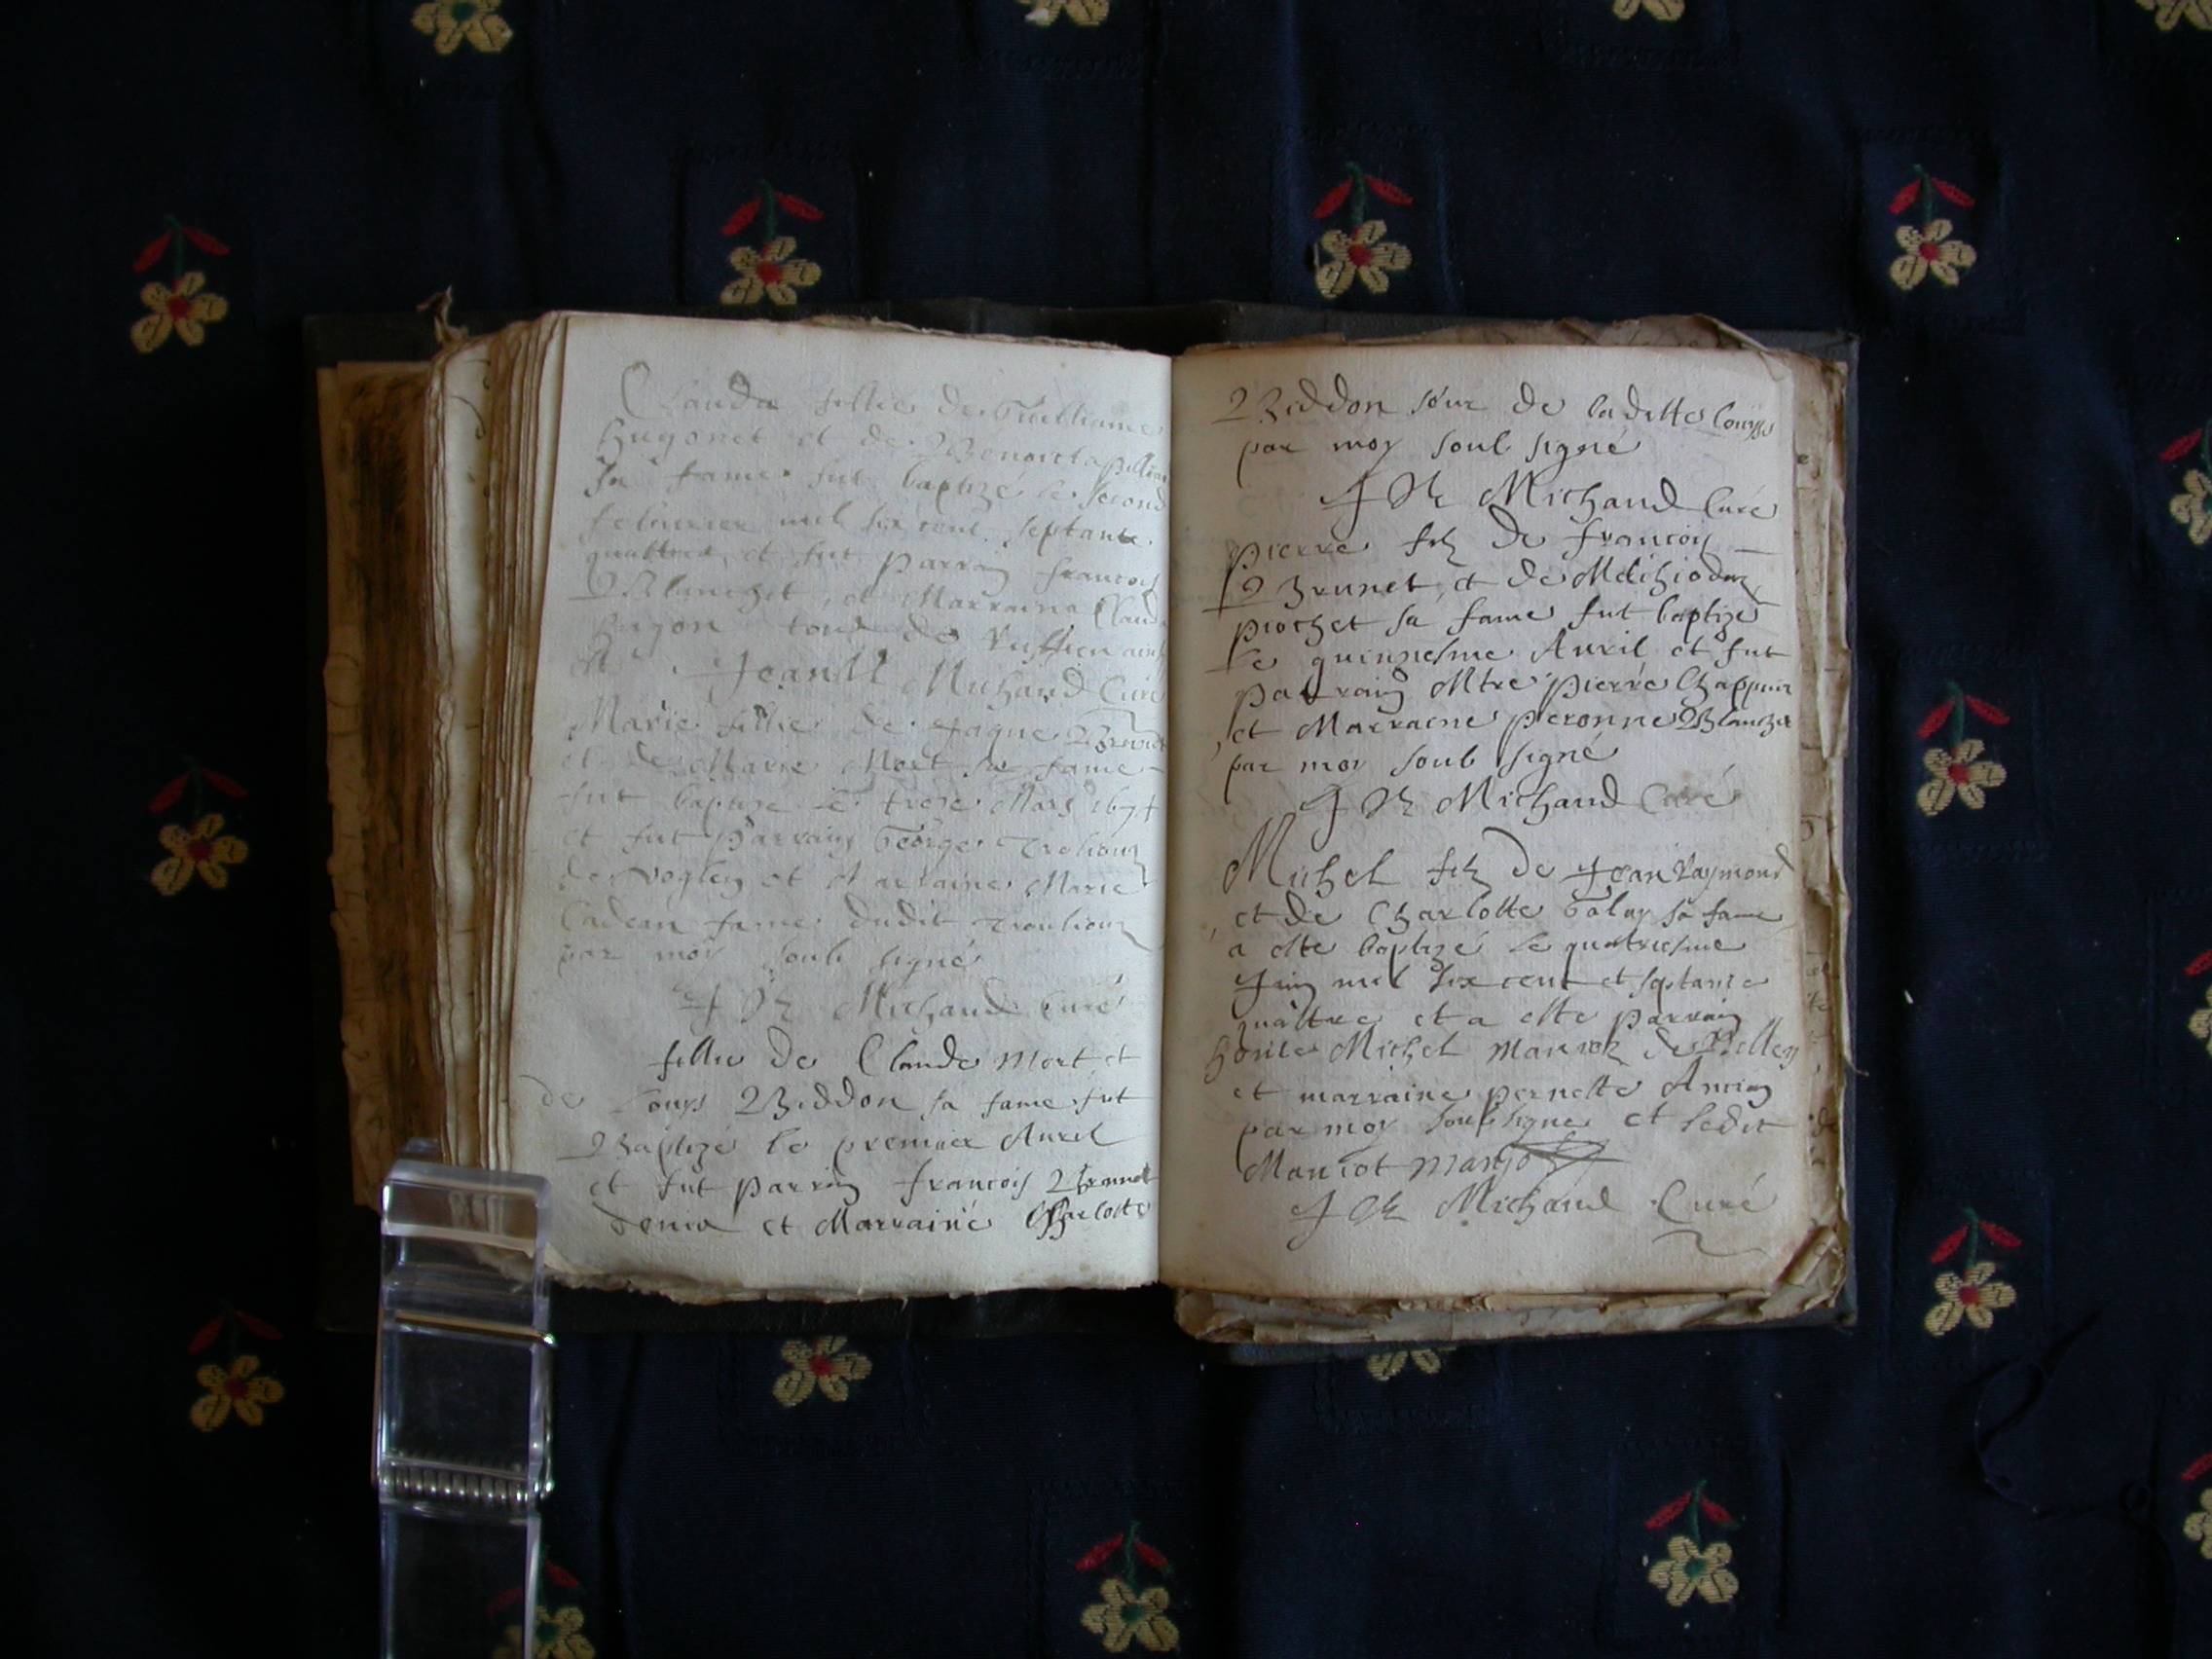 Clauda fillie de Guilliaume
Hugonet et de Benoicta
sa fame fut baptizé le second
febvrier mil six cent septante
quattre et fut parrain francois
Blanchet, et Marraine Claud
tous de Ruffieu ainsi
Michaud Curé
Marie fillie de Jaque
et de Marie Mort sa fame
fut baptize le treze Mars 1674
et fut parrain George
de Voglen et Marraine Marie
fame dudit
par moy soub signé
Michaud Curé
fillie de Claude Mort et
de Louyse Biddon sa fame fut
Baptizé le premier Avril
et fut parrin francois Brunet
et Marrainé Charlotte
Biddon seur de laditte Louyse
par moy soub signé
Michaud Curé
pierre filz de francois
Brunet, et de
piochet sa fame fut baptizé
le quinziesme Avril et fut
parrain Mtre pierre
et Marraine peronne Blanchet
par moy soub signé
Michaud Curé
Michel filz de Jean Raymond
et de Charlotte sa fame
a este baptizé le quatriesme
Juin mil six cent et septante
quattre et a este parrain
Michel de Belley
et marraine pernette
par moy soubsigné et ledit
Michaud Curé